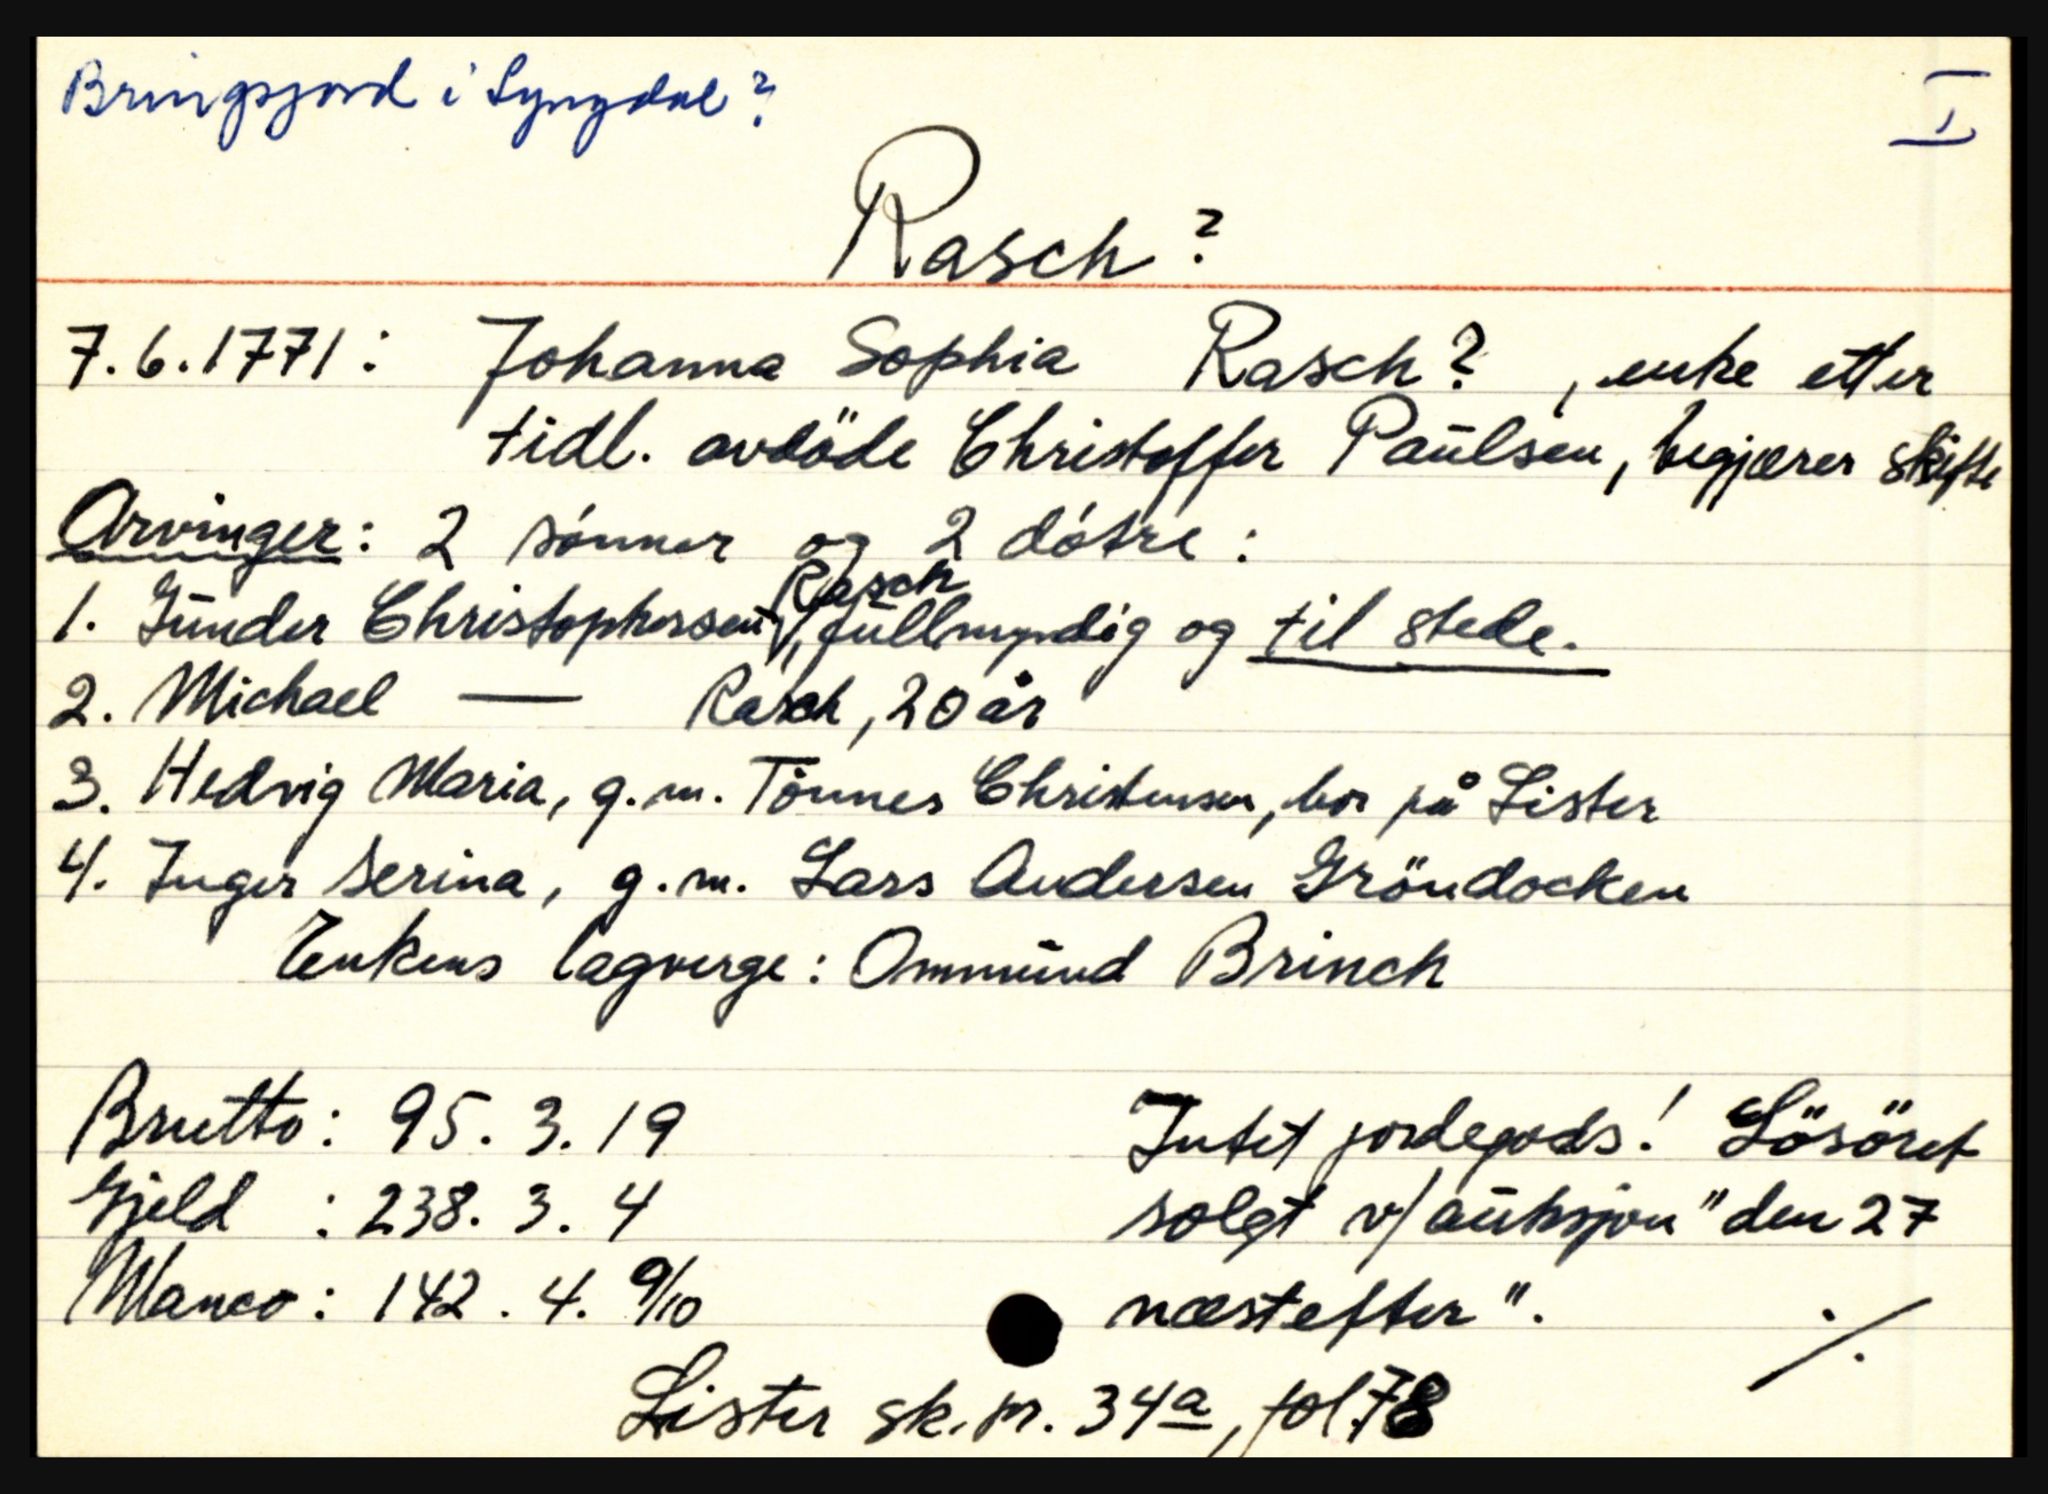 Bringsjord i Lyngdal?
I
Rasch?
7.6.1771: Johanna Sophia Rasch?, enke etter
tidl. avdöde Christoffer Paulsen, begjærer skifte
Arvinger: 2 sónner og 2 dótre:
Rasch
1. Gunder Christophersen, fullmyndig og til stede.
2. Michael — Rasch, 20 år
3. Hedvig Maria, g.m. Tönnes Christensen, bor på Lister
4. Inger Serina, g.m. Lars Andersen Gröndocken
Enkens lagverge: Ommund Brinch
Brutto: 95. 3. 19
Gjeld : 238. 3. 4
Manco: 142. 4. 9/10
Intet jordegods! Lösöret
solgt v/auksjon "den 27
næstefter".
./.
Lister sk.pr. 34a, fol.78